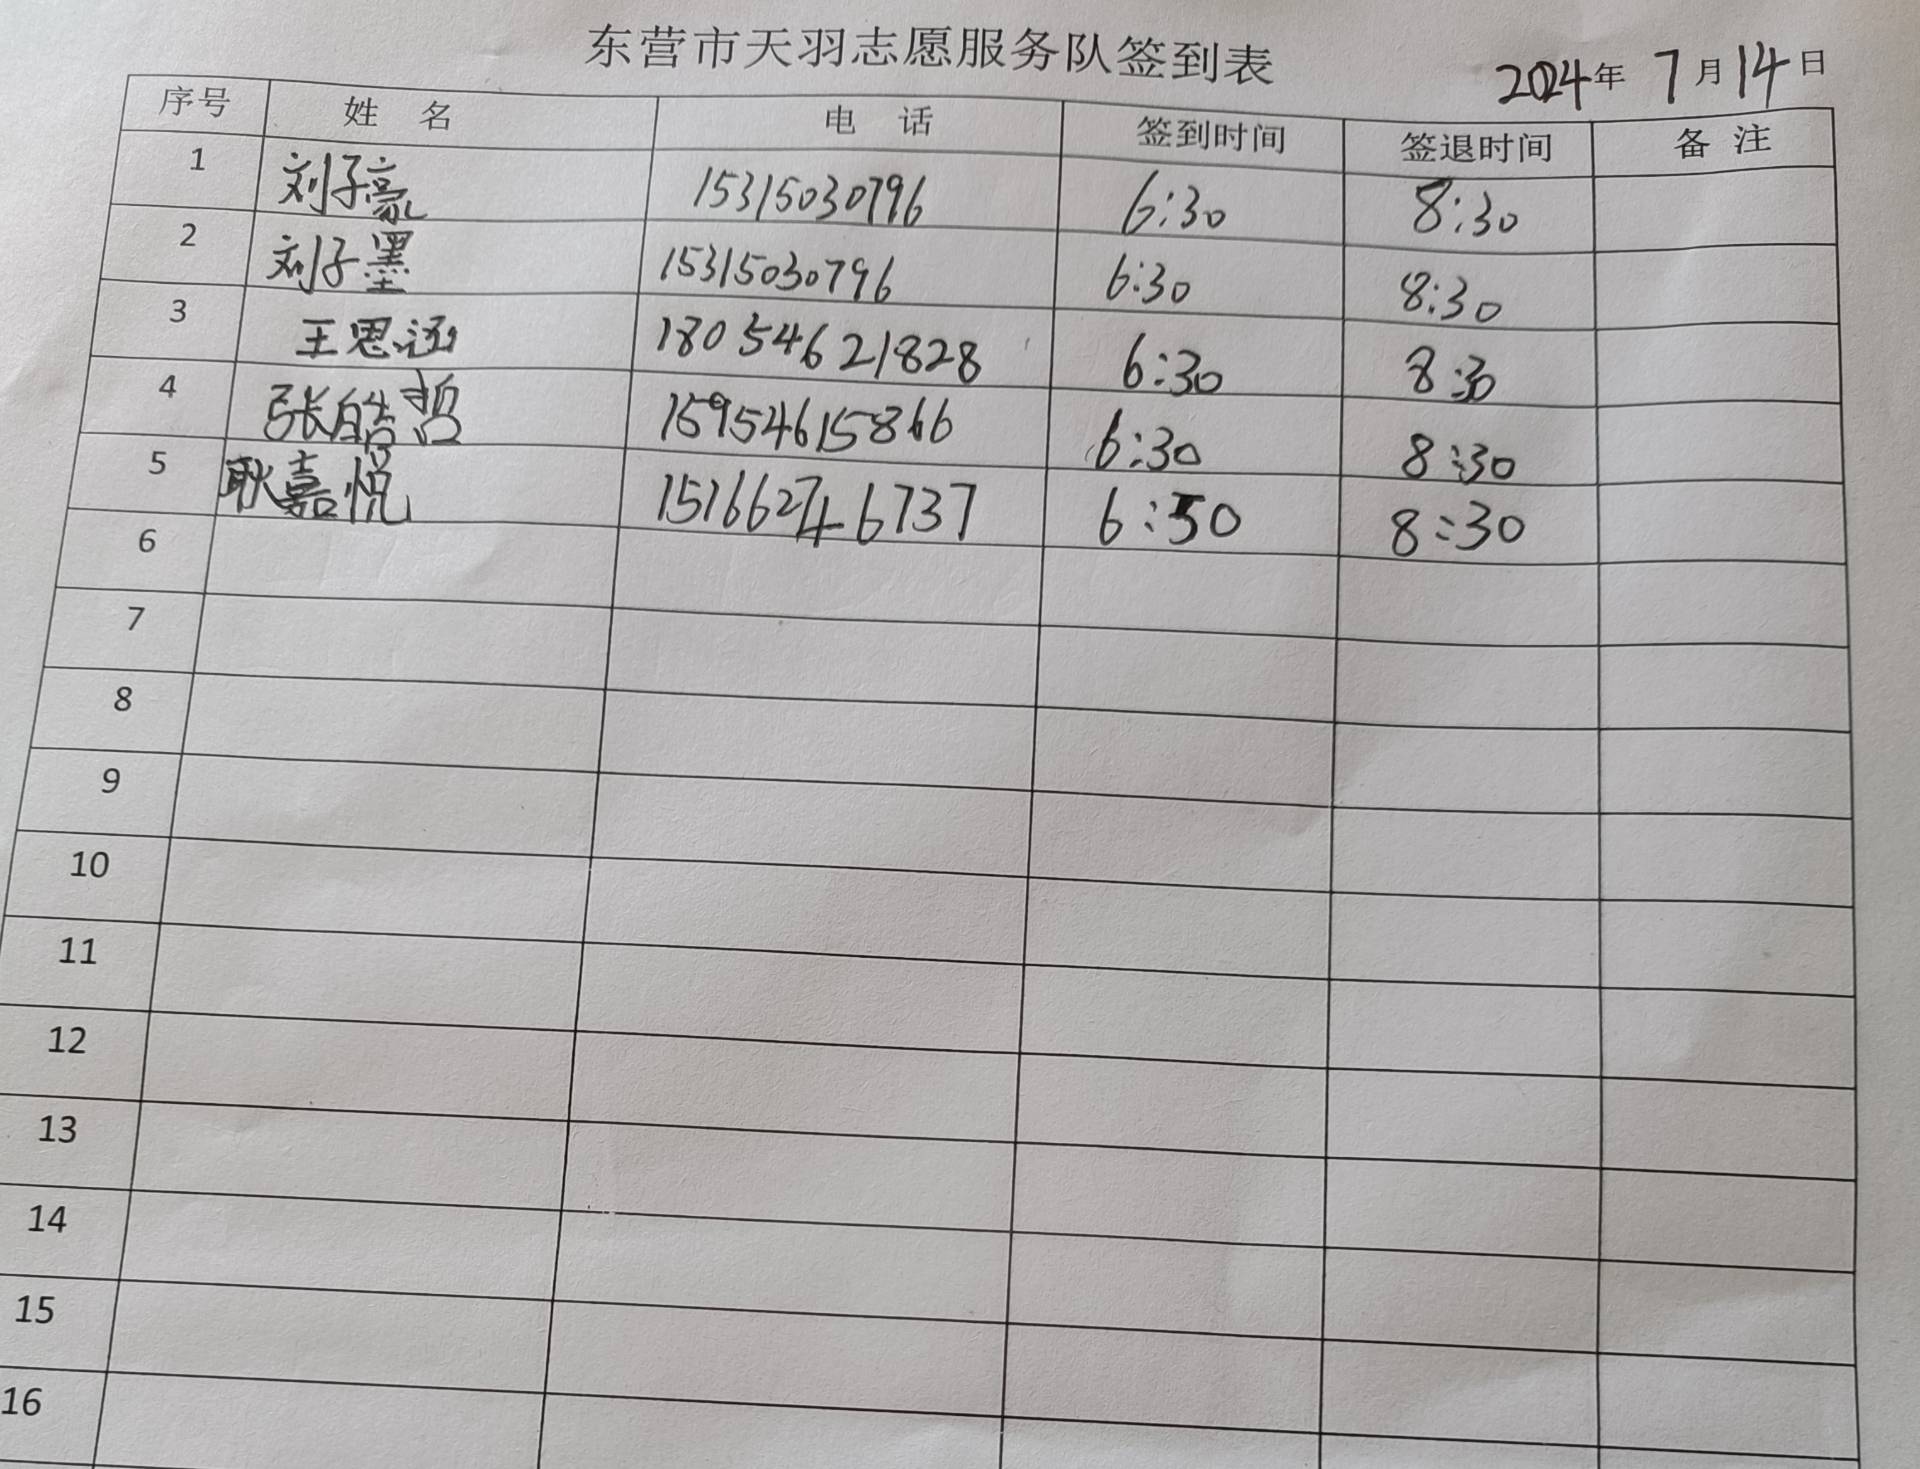 东营市天羽志愿服务队签到表
2024年 7月14日
序号 姓 名 电 话 签到时间 签退时间 备 注
1 刘子豪 15315030796 6:30 8:30
2 刘子墨 15315030796 6:30 8:30
3 王思涵 18054621828 6:30 8:30
4 张皓哲 15954615866 6:30 8:30
5 耿嘉悦 151662746737 6:50 8:30
6
7
8
9
10
11
12
13
14
15
16